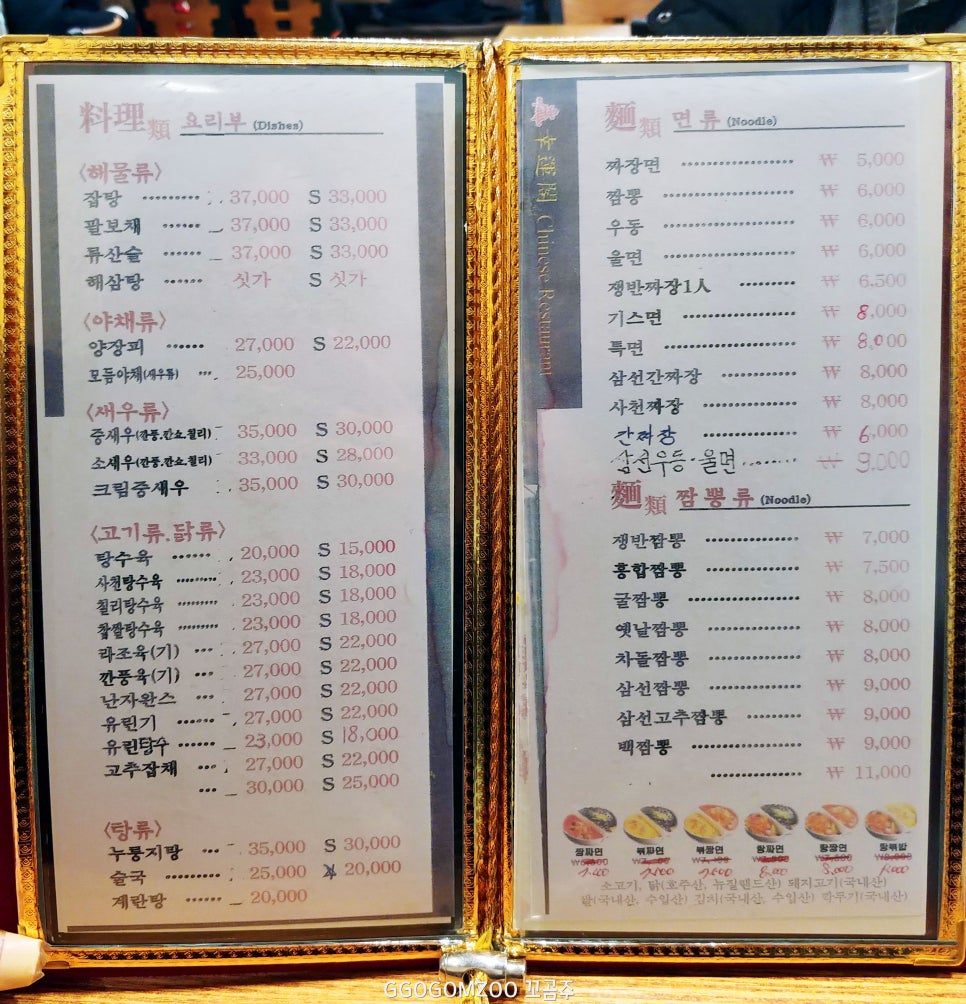 料理類 요리부 (Dishes)
〈해물류〉
잡탕 37,000 S 33,000
팔보채 37,000 S 33,000
류산슬 37,000 S 33,000
해삼탕 싯가 S 싯가
〈야채류〉
양장피 27,000 S 22,000
모듬야채(새우류) 25,000
〈새우류〉
중새우(깐풍.깐쇼.칠리) 35,000 S 30,000
소새우(깐풍.깐쇼.칠리) 33,000 S 28,000
크림중새우 35,000 S 30,000
〈고기류.닭류〉
탕수육 20,000 S 15,000
사천탕수육 23,000 S 18,000
칠리탕수육 23,000 S 18,000
찹쌀탕수육 23,000 S 18,000
라조육(기) 27,000 S 22,000
깐풍육(기) 27,000 S 22,000
난자완스 27,000 S 22,000
유린기 27,000 S 22,000
유린탕수 23,000 S 18,000
고추잡채 27,000 S 22,000
30,000 S 25,000
〈탕류〉
누룽지탕 35,000 S 30,000
술국 25,000 ☆ 20,000
계란탕 20,000
幸運閣 Chinese Restaurant
麵類 면류 (Noodle)
짜장면 ₩ 5,000
짬뽕 ₩ 6,000
우동 ₩ 6,000
울면 ₩ 6,000
쟁반짜장1人 ₩ 6,500
기스면 ₩ 8,000
특면 ₩ 8,000
삼선간짜장 ₩ 8,000
사천짜장 ₩ 8,000
간짜장 ₩ 6,000
삼선우동·울면 ₩ 9,000
麵類 짬뽕류 (Noodle)
쟁반짬뽕 ₩ 7,000
홍합짬뽕 ₩ 7,500
굴짬뽕 ₩ 8,000
옛날짬뽕 ₩ 8,000
차돌짬뽕 ₩ 8,000
삼선짬뽕 ₩ 9,000
삼선고추짬뽕 ₩ 9,000
백짬뽕 ₩ 9,000
₩ 11,000
짬짜면 볶짜면 볶짬면 탕짜면 탕짬면 탕볶밥
8,000 8,000
소고기, 닭(호주산, 뉴질랜드산) 돼지고기(국내산)
쌀(국내산, 수입산) 김치(국내산, 수입산) 깍두기(국내산)
GGOGOMZOO 꼬곰주